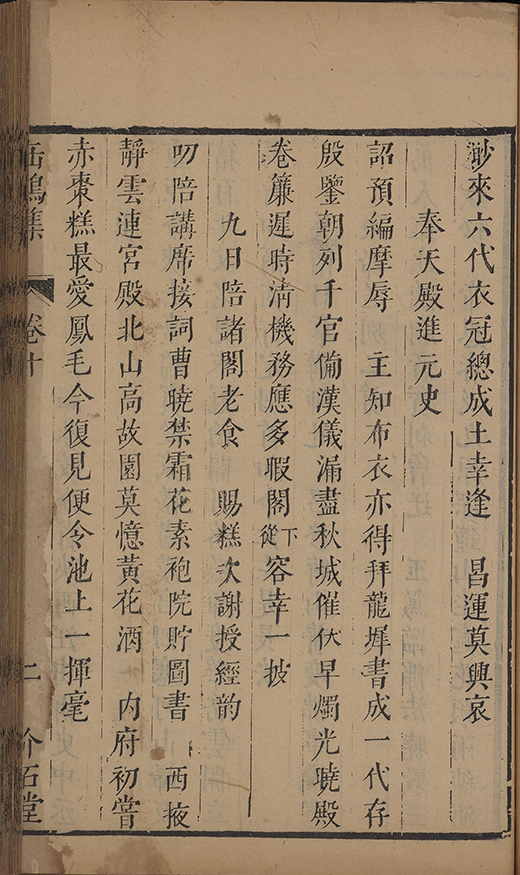 渺來六代衣冠總成土幸逢　昌運莫興哀
奉天殿進元史
詔預編摩辱　主知布衣亦得拜龍墀書成一代存
殷鑒朝列千官備漢儀漏盡秋城催仗早燭光曉殿
卷簾遲時淸機務應多暇閣下從容幸一披
九日陪諸閣老食　賜糕次謝授經韵
叨陪講席接詞曹曉禁霜花素袍院貯圖書　西掖
靜雲連宮殿北山高故園莫憶黃花酒　內府初嘗
赤棗糕最愛鳳毛今復見便令池上一揮毫
缶鳴集　卷十　二　介石堂